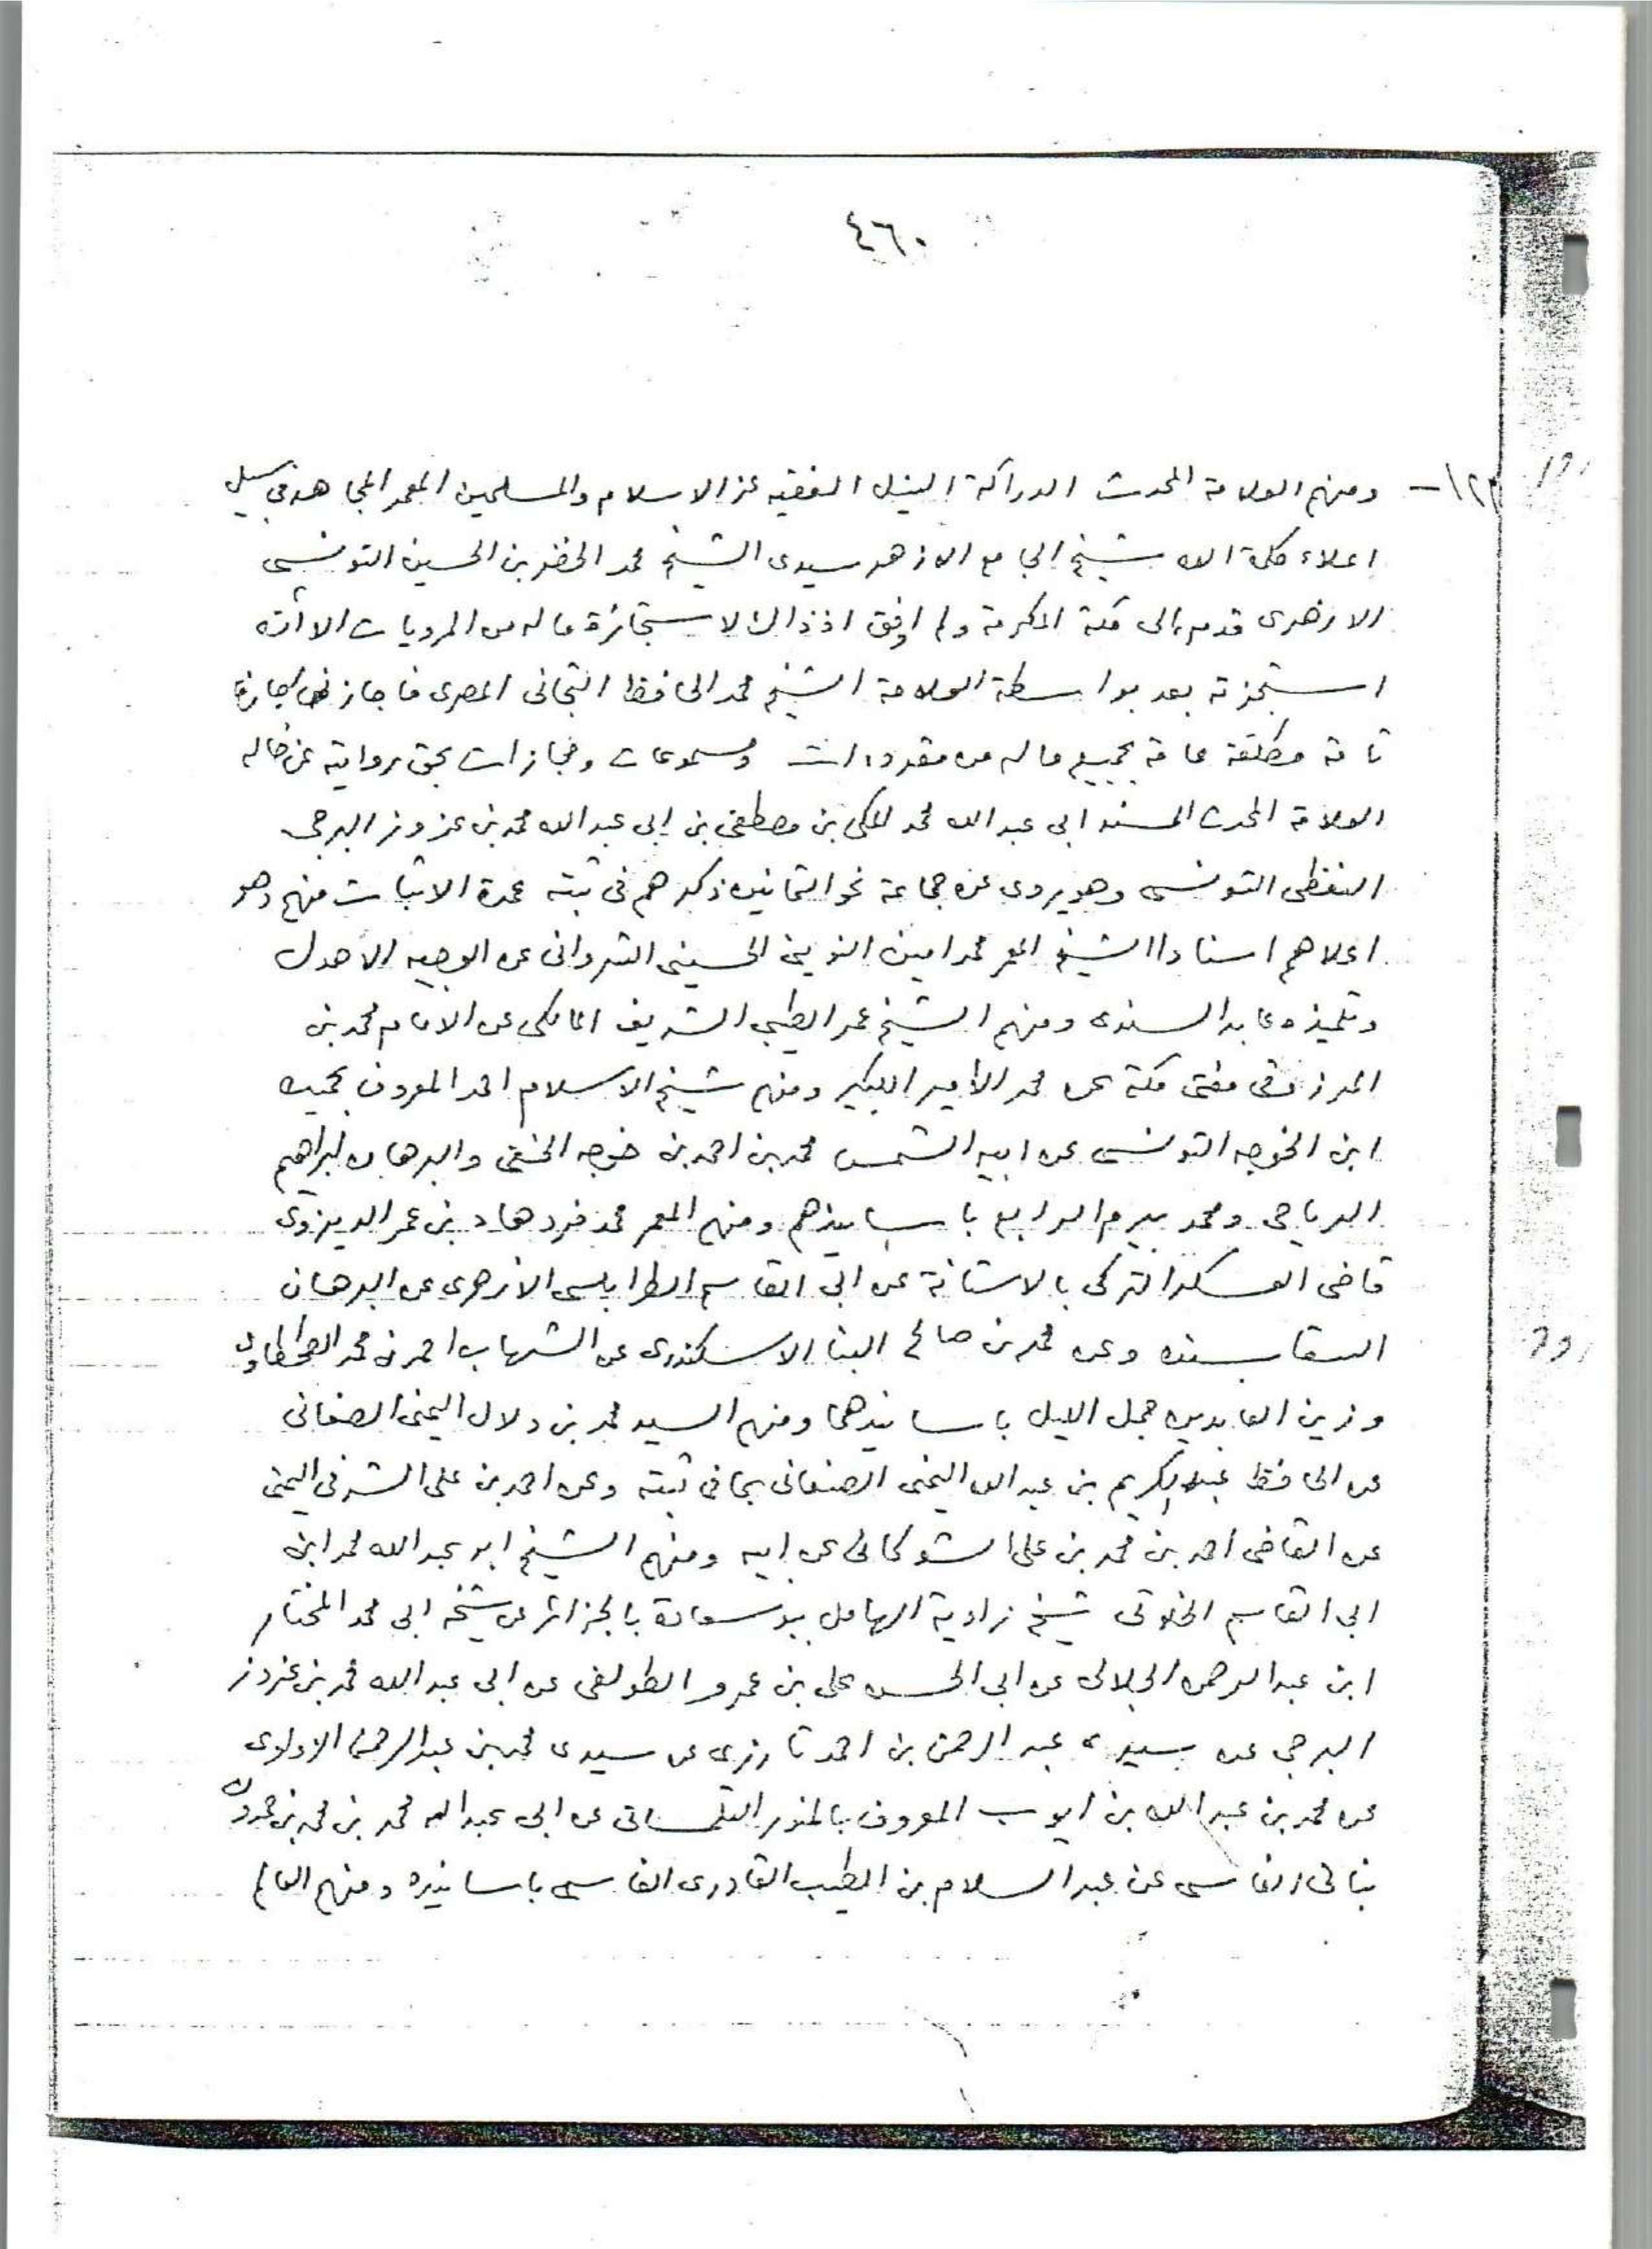 ٤٦٠
١٢٣- ومنهم العلامة المحدث الدراكة النبيل الفقيه عز الاسلام والمسلمين المعمر المجاهد في سبيل
اعلاء كلمة الله شيخ الجامع الازهر سيدى الشيخ محمد الخضر بن الحسين التونسى
الازهرى قدم الى مكة المكرمة ولم اوفق اذ ذاك لاستجازة ما له من المرويات الا أنه
استجزته بعد بواسطة العلامة الشيخ محمد الحافظ التجانى المصرى فاجازنى اجازة
تامة مطلقة عامة بجميع ماله من مقروءات ومسموعات ومجازات بحق روايته عن خاله
العلامة المحدث المسند ابى عبد الله محمد المكى بن مصطفى بن ابى عبد الله محمد بن عزوز البرجى
النفطى التونسى وهو يروى عن جماعة نحو الثمانين ذكرهم فى ثبته عمدة الاثبات منهم وهو
اعلاهم اسنادا الشيخ المعمر محمد امين الحسينى الشروانى عن الوجيه الاهدل
وتلميذه عابد السندى ومنهم الشيخ عمر الطيب الشريف المالكى عن الامام محمد بن
المرزوقى مفتى مكة عن محمد الأمير الكبير ومنهم شيخ الاسلام احمد المعروف بحميده
ابن الخوجه التونسى عن ابيه الشمس محمد بن احمد بن خوجه الحنفى والبرهان ابراهيم
الرياحى ومحمد بيرم الرابع باسانيدهم ومنهم المعمر محمد فرهاد بن عمر الديزوى
قاضى العسكر التركى بالاستانة عن ابى القاسم الطرابلسى الازهرى عن البرهان
السقا بسنده وعن محمد بن صالح البنا الاسكندرى عن الشهاب احمد بن محمد الطحطاوى
وزين العابدين جمل الليل باسانيدهما ومنهم السيد محمد بن دلال اليمنى الصنعانى
عن الحافظ عبد الكريم بن عبد الله اليمنى الصنعانى بما فى ثبته وعن احمد بن على الشرفى اليمنى
عن القاضى احمد بن محمد بن على الشوكانى عن ابيه ومنهم الشيخ ابو عبد الله محمد ابن
ابى القاسم الخلوتى شيخ زاوية الهامل ببوسعادة بالجزائر عن شيخه ابى محمد المختار
ابن عبد الرحمن الجلالى عن ابى الحسن على بن عمر الطولقى عن ابى عبد الله محمد بن عزوز
البرجى عن سيدى عبد الرحمن بن احمد تارزى عن سيدى محمد بن عبد الرحمن الازهرى
عن محمد بن عبد الله بن ايوب المعروف بالمنور التلمسانى عن ابى عبد الله محمد بن محمد بن حمدون
بنانى الفاسى عن عبد السلام بن الطيب القادرى الفاسى باسانيده ومنهم العالم